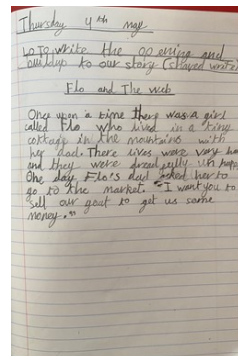 Thursday 4th may
LO TO write the opening and
buildup to our story (shared write
Flo and The web
Once upon a time there was a girl
called Flo who lived in a tiny
cottage in the mountains with
her dad. There lives were very ha
and they were dreadfully un happ
One day Flo's dad asked her to
go to the market. "I want you to
sell our goat to get us some
money."